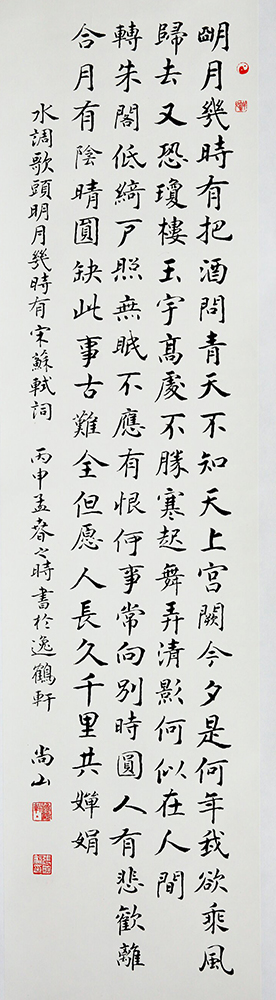 明月幾時有把酒問青天不知天上宮闕今夕是何年我欲乘風
歸去又恐瓊樓玉宇高處不勝寒起舞弄清影何似在人間
轉朱閣低綺戶照無眠不應有恨何事常向別時圓人有悲歡離
合月有陰晴圓缺此事古難全但愿人長久千里共嬋娟
水調歌頭明月幾時有宋蘇軾詞 丙申孟春之時書於逸鶴軒 尚山